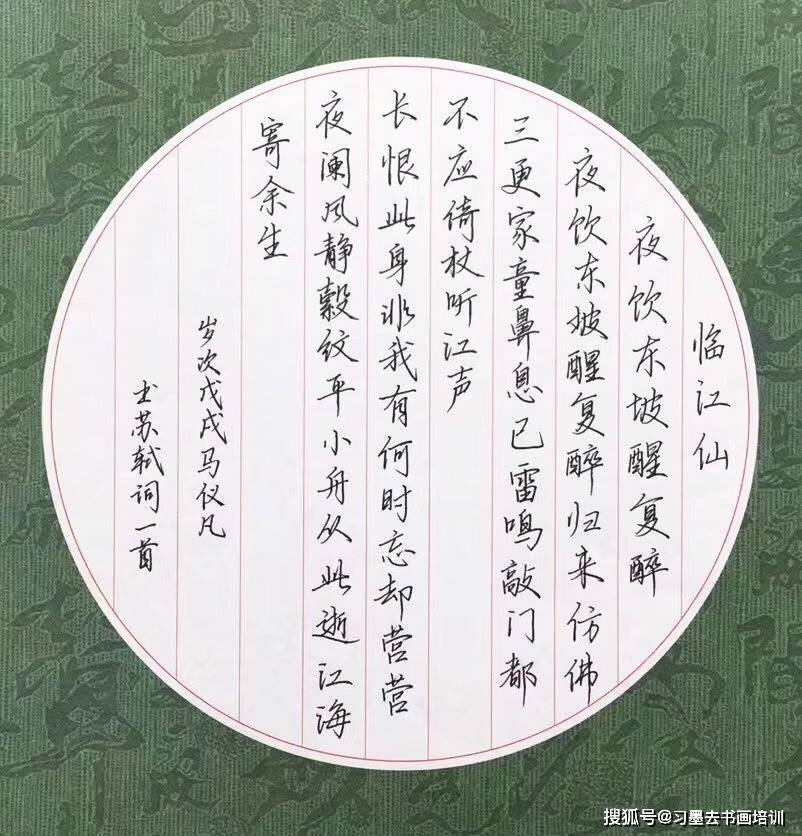 临江仙
夜饮东坡醒复醉
夜饮东坡醒复醉归来仿佛
三更家童鼻息已雷鸣敲门都
不应倚杖听江声
长恨此身非我有何时忘却营营
夜阑风静縠纹平小舟从此逝江海
寄余生
岁次戊戌马仪凡
书苏轼词一首
搜狐号@习墨去书画培训